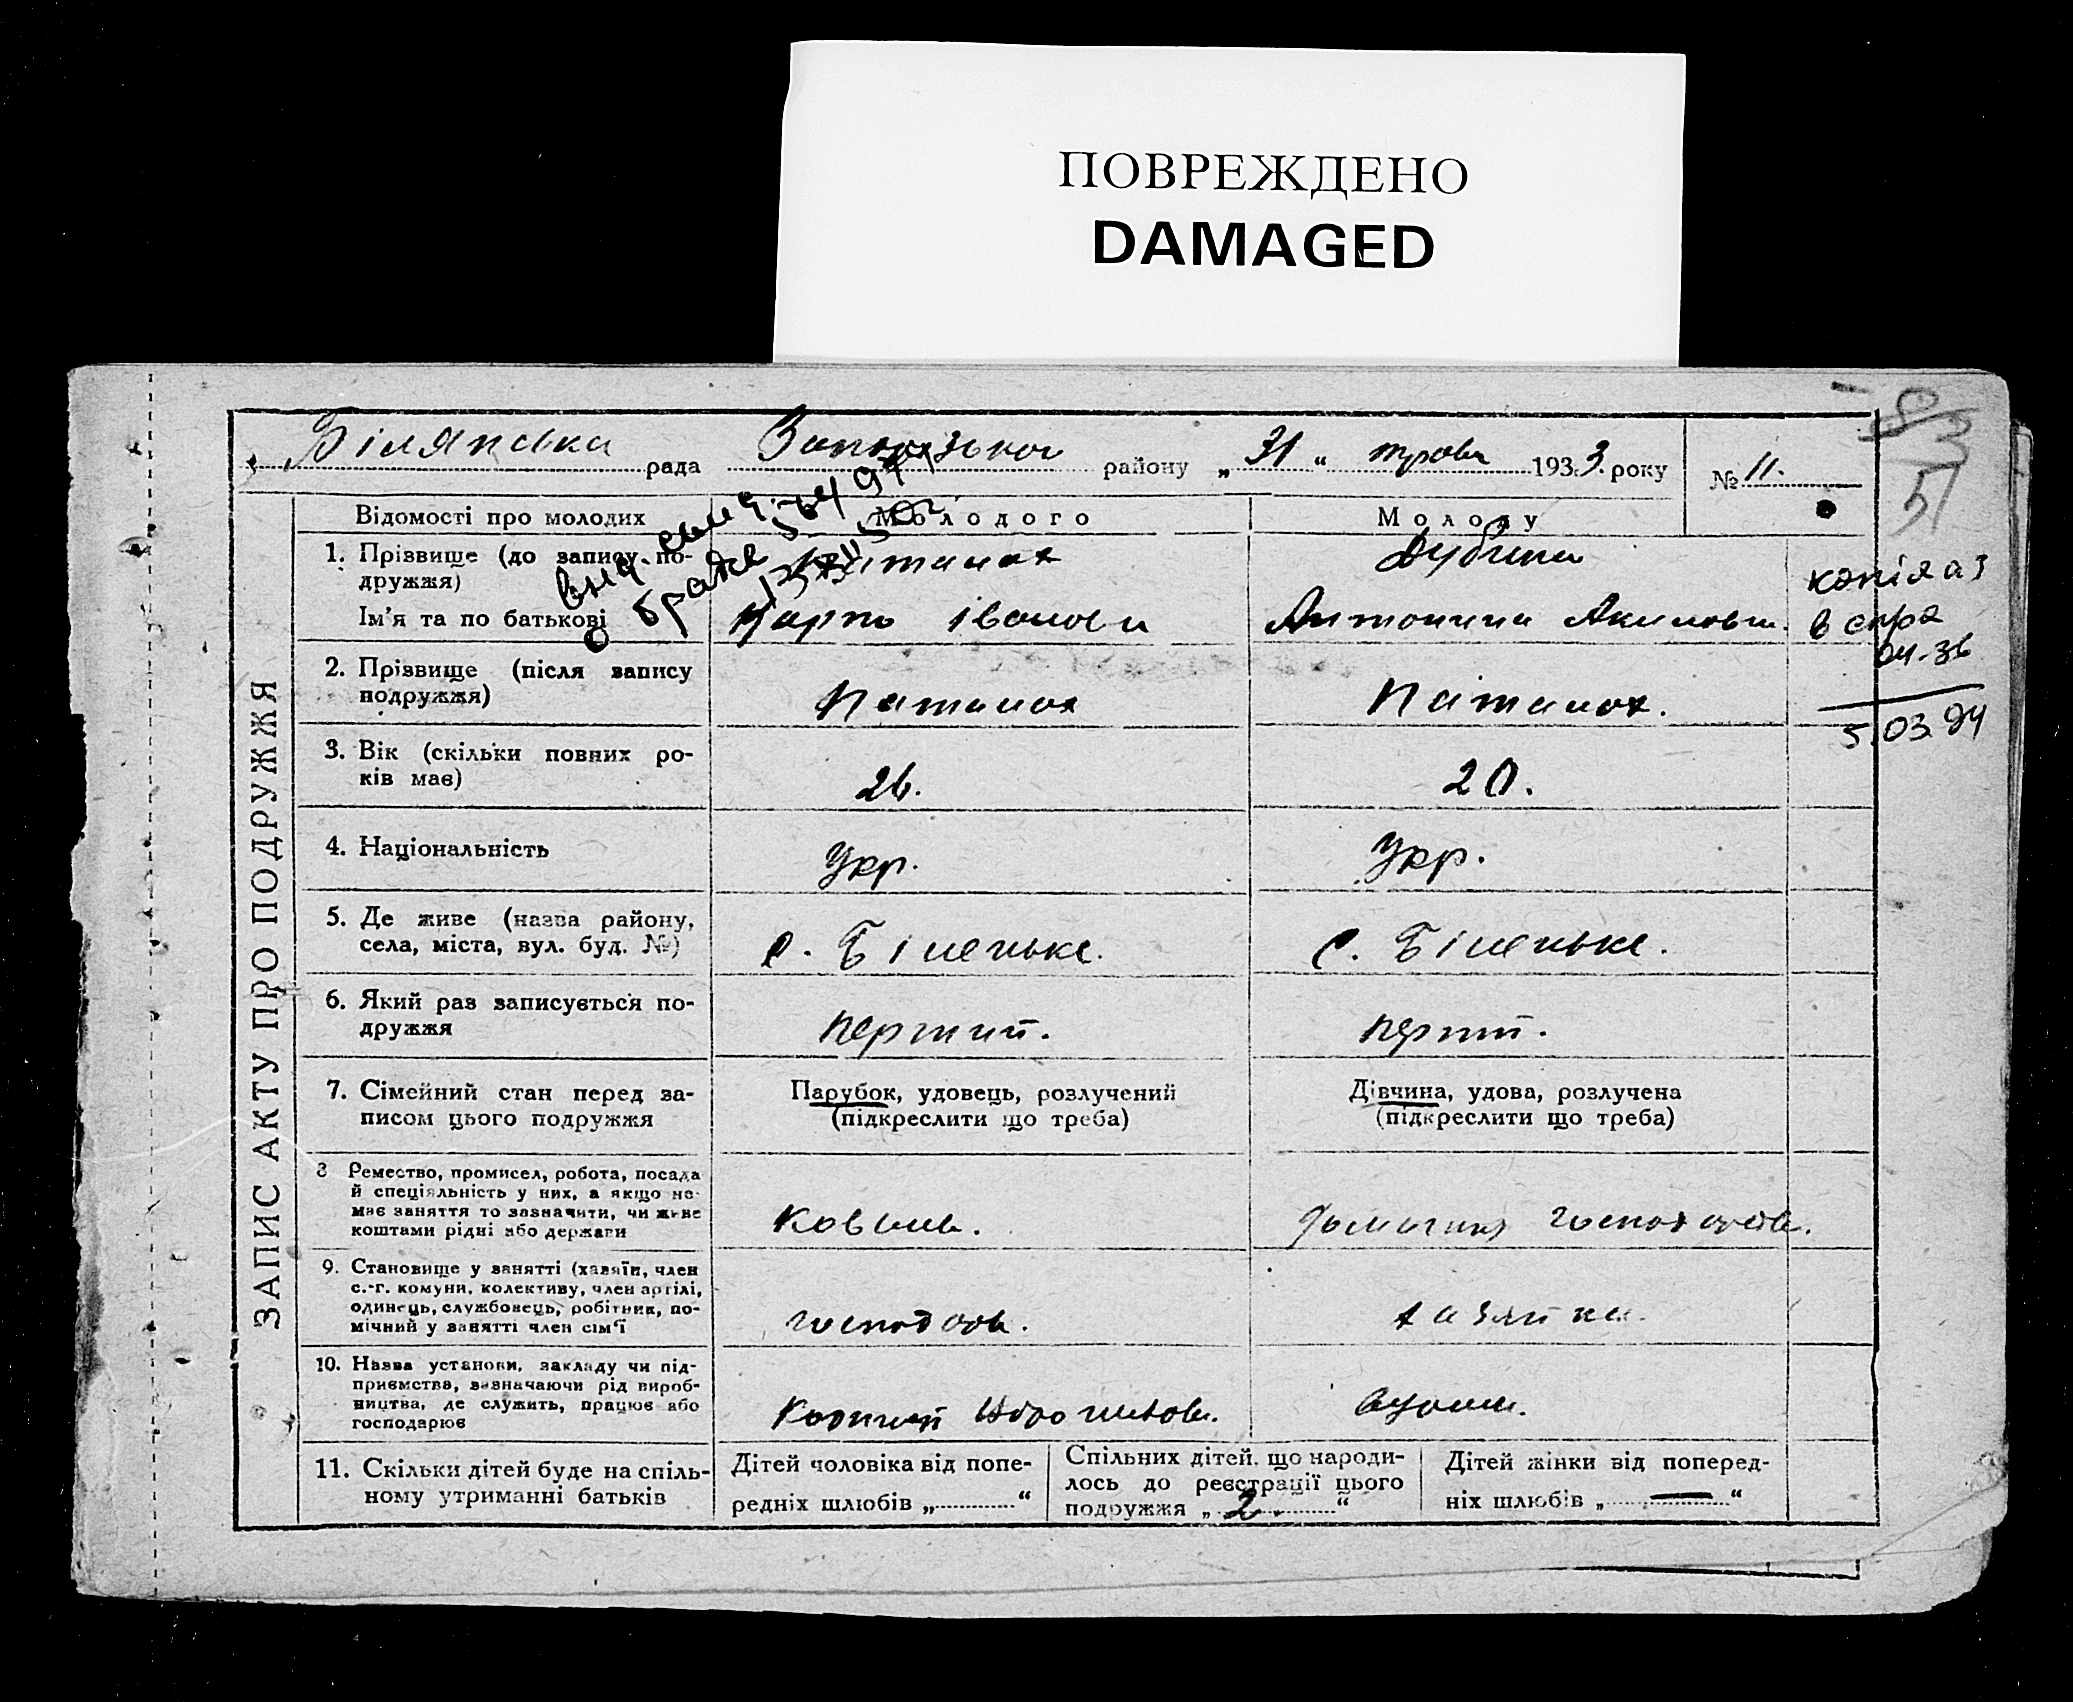 ПОВРЕЖДЕНО
DAMAGED
рада Запорізької району „ 31 “ травн 1933 року № 11.
51
ЗАПИС АКТУ ПРО ПОДРУЖЖЯ
Відомості про молодих Молодого Молоду
1. Прізвище (до запису по-
дружжя) Дубина
Ім'я та по батькові Карпо Іванови Антонина Акимовн.
копія аз
в спра
04-36
5.03.94
вид. свид.
о браке
2. Прізвище (після запису
подружжя)
3. Вік (скільки повних ро-
ків має) 26. 20.
4. Національність Укр. Укр.
5. Де живе (назва району,
села, міста, вул. буд. №) с. Біленьке. с. Біленьке.
6. Який раз записується по-
дружжя перший. перший.
7. Сімейний стан перед за-
писом цього подружжя
Парубок, удовець, розлучений
(підкреслити що треба)
Дівчина, удова, розлучена
(підкреслити що треба)
8 Ремество, промисел, робота, посада
й спеціяльність у них, а якщо не
має заняття то зазначити, чи живе
коштами рідні або держави
Коваль. домашня господарств.
9. Становище у занятті (хазяїн, член
с.-г. комуни, колективу, член артілі,
одинець, службовець, робітник, по-
мічний у занятті член сім'ї
господарь. хазяйка.
10. Назва установи, закладу чи під-
приємства, зазначаючи рід вироб-
ництва, де служить, працює або
господарює
11. Скільки дітей буде на спіль-
ному утриманні батьків
Дітей чоловіка від попе-
редніх шлюбів „ “
Спільних дітей, що народи-
лось до реєстрації цього
подружжя „ 2. “
Дітей жінки від поперед-
ніх шлюбів „ — “